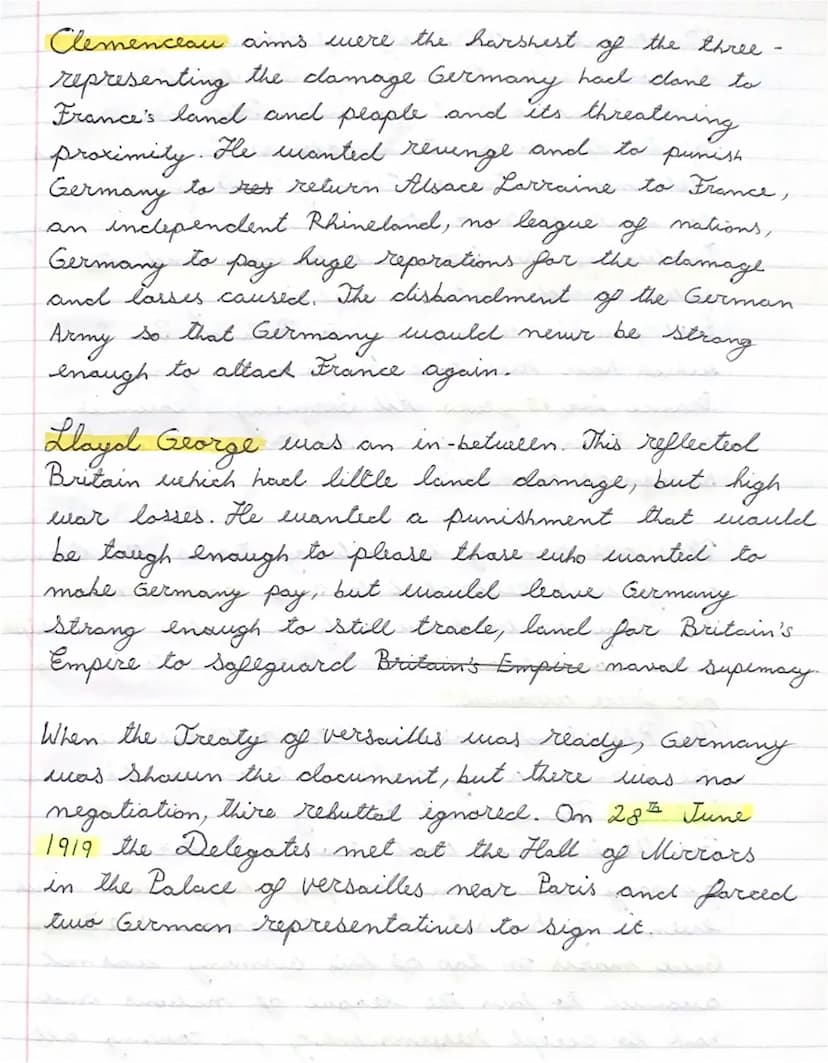 Clemenceau aims were the harshest of the three -
representing the damage Germany had done to
France's land and people and its threatening
proximity. He wanted revenge and to punish
Germany to res return Alsace Lorraine to France,
an independent Rhineland, no league of nations,
Germany to pay huge reparations for the damage
and losses caused. The disbandment of the German
Army so that Germany would never be strong
enough to attack France again.
Lloyd George was an in-between. This reflected
Britain which had little land damage, but high
war losses. He wanted a punishment that would
be tough enough to please those who wanted to
make Germany pay, but would leave Germany
strong enough to still trade, land for Britain's
Empire to safeguard Britain's Empire naval supremacy.
When the Treaty of versailles was ready, Germany
was shown the document, but there was no
negotiation, thire rebuttal ignored. On 28th June
1919 the Delegates met at the Hall of Mirrors
in the Palace of versailles near Paris and forced
two German representatives to sign it.